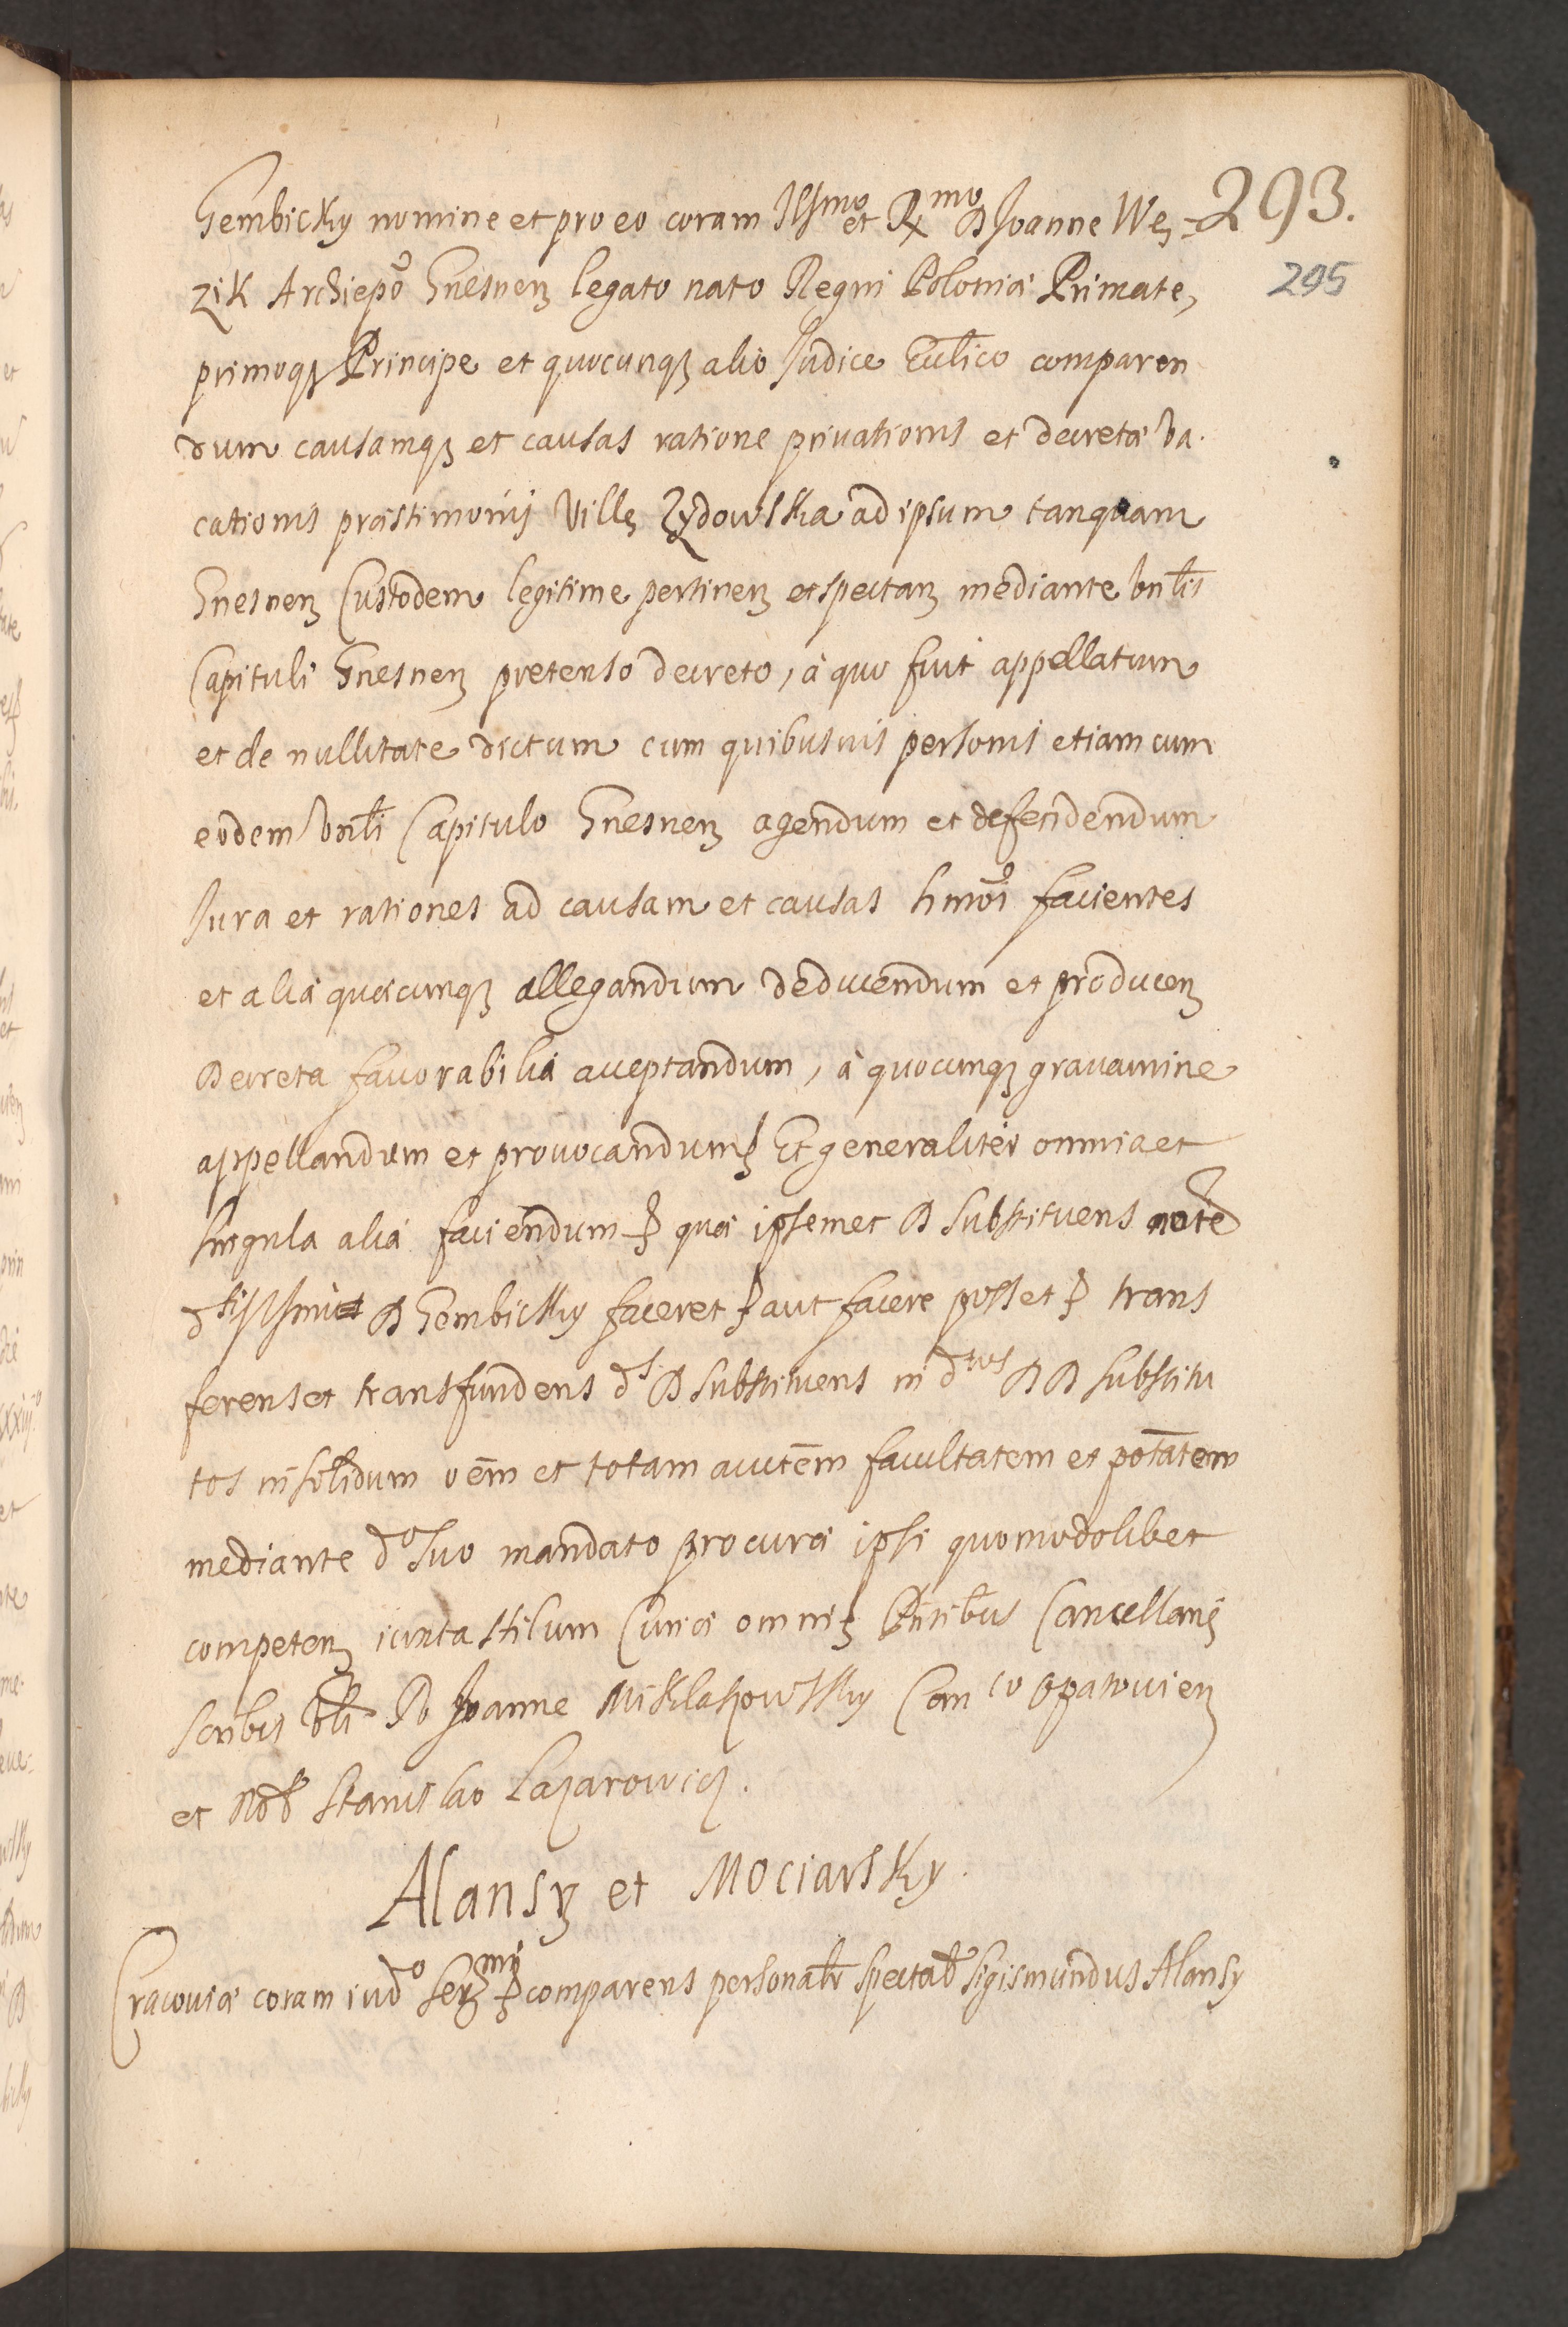 293.
295
Gembicky nomine et pro eo coram Illmo et Rmo D Joanne Wę-
zik Archiepo Gnesnen legato nato Regni Poloniæ Primate,
primoq Principe et quocunq alio Judice Ecclico comparen
dum causamq et causas ratione privationis et decretæ va-
cationis præstimonij Villę Zydowska ad ipsum tanquam
Gnesnen Custodem legitime pertinen et spectan mediante vnlis
Capituli Gnesnen pretenso decreto, à quo fuit appellatum
et de nullitate dictum cum quibusuis personis etiam cum
eodem Vnli Capitulo Gnesnen agendum et defendendum
Jura et rationes ad causam et causas hmoi facientes
et alia quæcunq allegandum deducendum et producen
Decreta fauorabilia acceptandum, à quocunq grauamine
appellandum et prouocandum Et generaliter omnia et
singula alia faciendum quæ ipsemet D Substituens noie
dti Illmi D Gembicky faceret aut facere posset trans
ferens et transfundens ds D Substituens in dtos DD Substitu
tos insolidum oem et totam auctem facultatem et potatem
mediante do suo mandato procuræ ipsi quomodolibet
competen iuxta stilum Curiæ omni Pntibus Cancellarię
scribis Vli D Joanne Miklaszowsky Canco Opatouien
et Nob Stanislao Lazarowicz.
Alansy et Mociarsky.
Cracouiæ coram iudo Sermi comparens personalr spectab Sigismundus Alansy